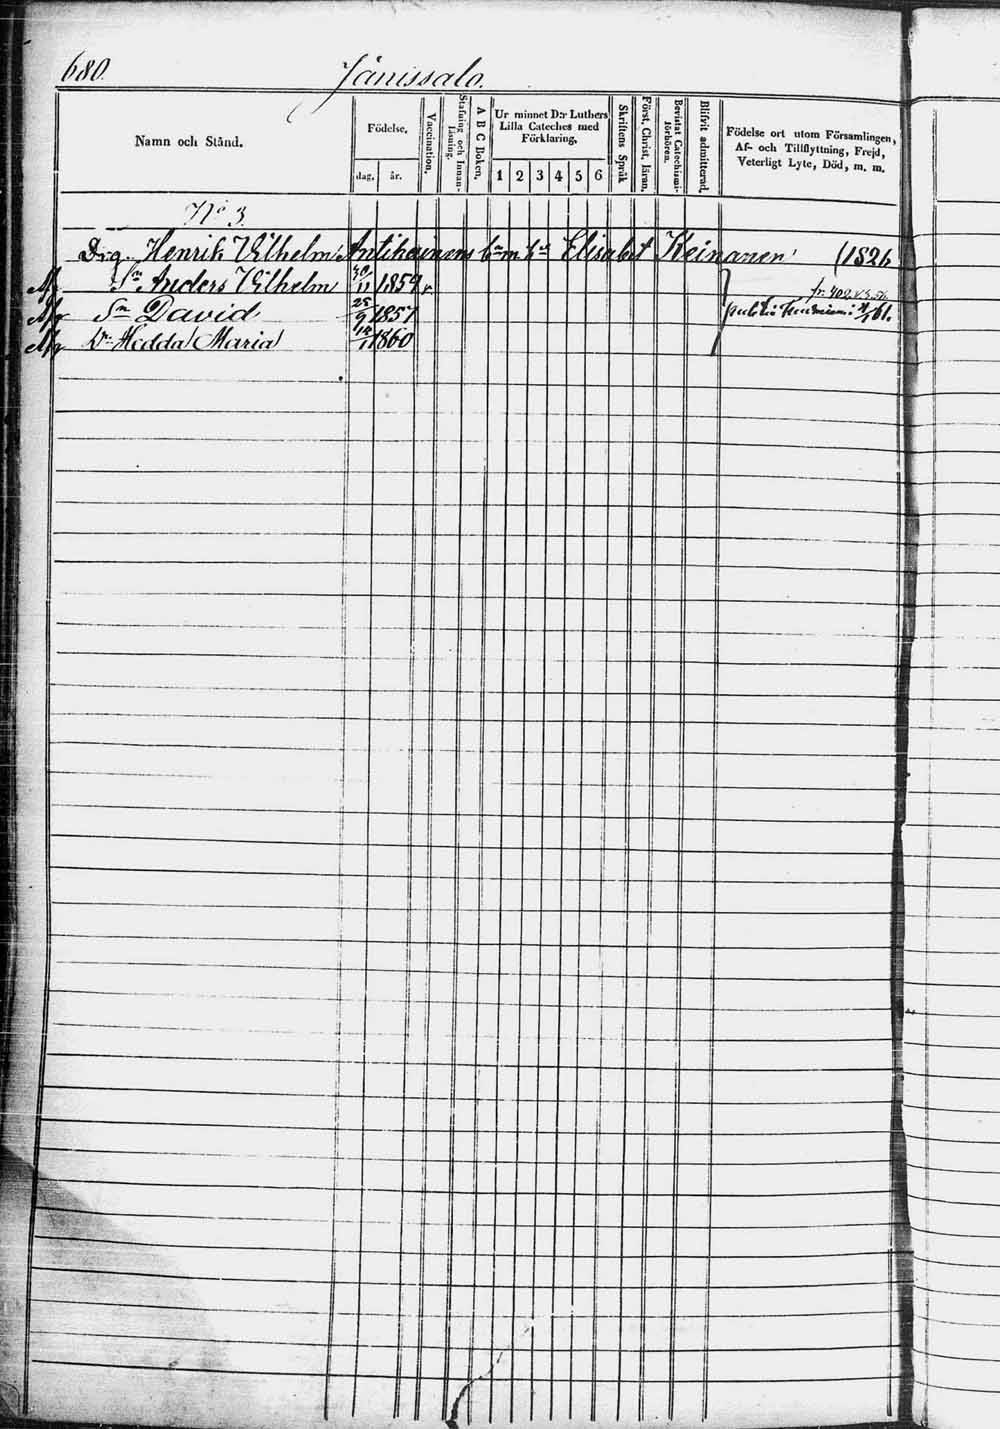 680.
Jänissalo.
Namn och Stånd.
Födelse.
dag. år.
Vaccination.
Stafning och Innan-läsning.
A B C Boken.
Ur minnet D:r Luthers
Lilla Cateches med
Förklaring.
1 2 3 4 5 6
Skriftens Språk
Först. Christ. läran.
Bevistat Catechismi-förhören.
Blifvit admitterad.
Födelse ort utom Församlingen,
Af- och Tillflyttning, Frejd,
Veterligt Lyte, Död, m. m.
No 3.
Drg. Henrik Vilhelm Antikainens h:u Elisabet Keinanen (1826
Sn Anders Vilhelm 11 1859 v
fr. 402
Sn David 25/9 1857 61.
Dr Hedda Maria 1860